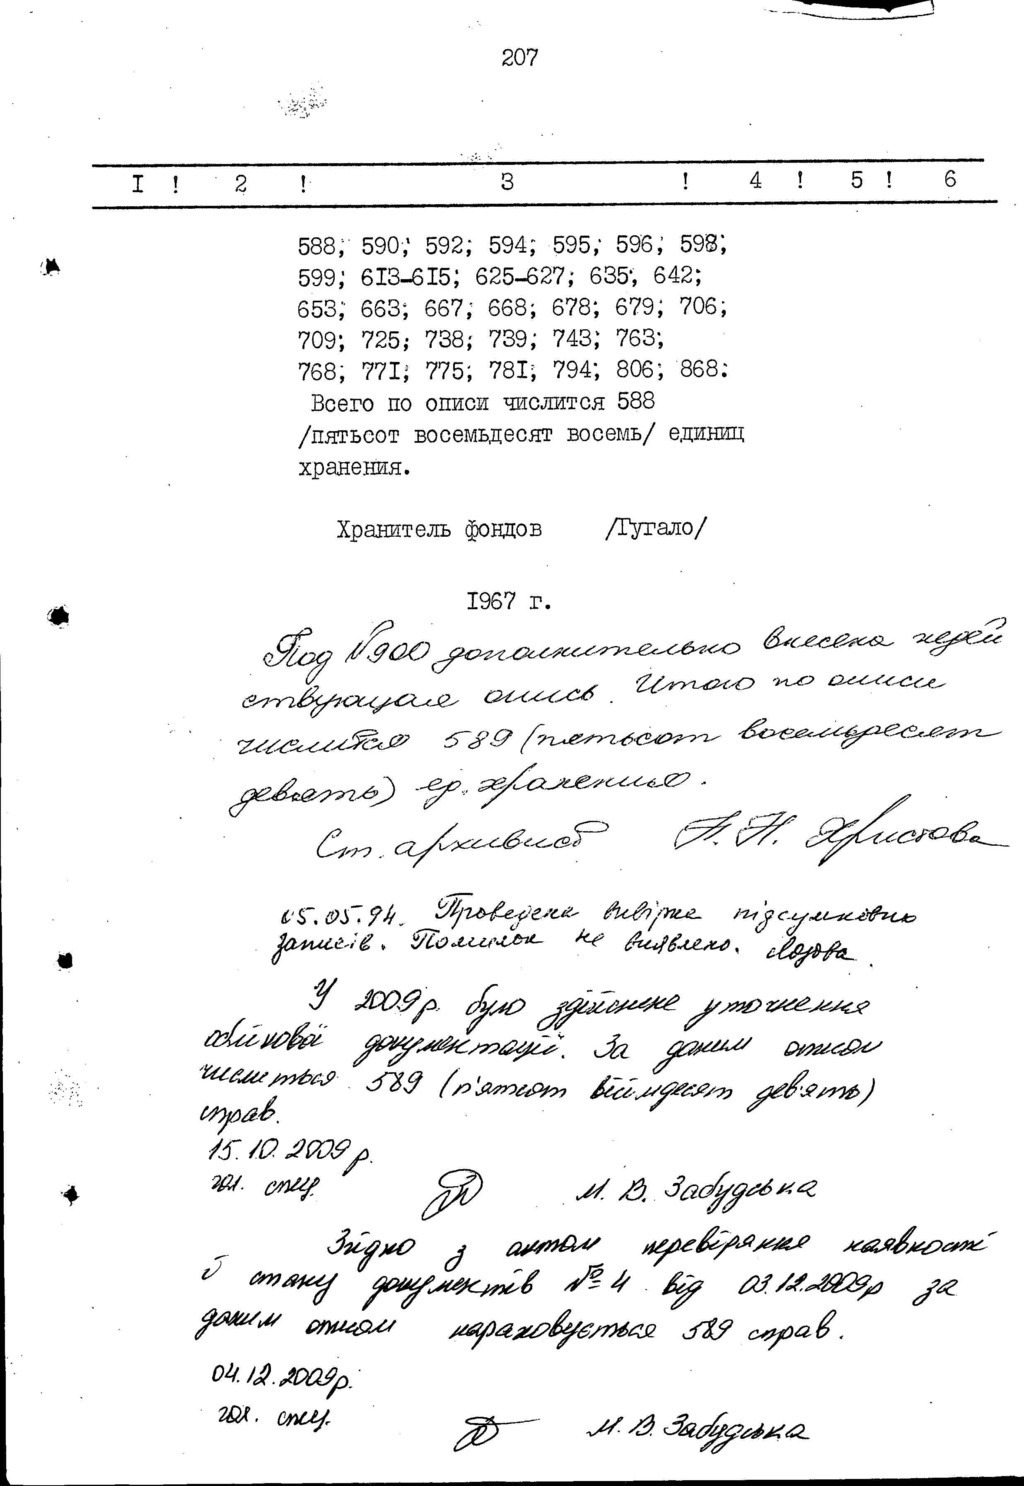 207
I ! 2 ! 3 ! 4 ! 5 ! 6
588; 590; 592; 594; 595; 596; 598;
599; 6I3-6I5; 625-627; 635; 642;
653; 663; 667; 668; 678; 679; 706;
709; 725; 738; 739; 743; 763;
768; 77I; 775; 78I; 794; 806; 868.
Всего по описи числится 588
/пятьсот восемьдесят восемь/ единиц
хранения.
Хранитель фондов /Гугало/
I967 г.
Под №900 дополнительно внесена недей
ствующая опись. Итого по описи
числится 589 (пятьсот восемьдесят
девять) ед. хранения.
Ст. архивист Н. Н. Христова
05.05.94. Проведена вивірка підсумкових
записів. Помилок не виявлено. Лозова.
У 2009 р. було здійснене уточнення
облікової документації. За даним описом
числиться 589 (п'ятсот вісімдесят дев'ять)
справ.
15.10.2009 р.
гол. спец. М. В. Забудська
Згідно з актом перевіряння наявності
й стану документів №4 від 03.12.2009р за
даним описом нараховується 589 справ.
04.12.2009р.
гол. спец. М. В. Забудська